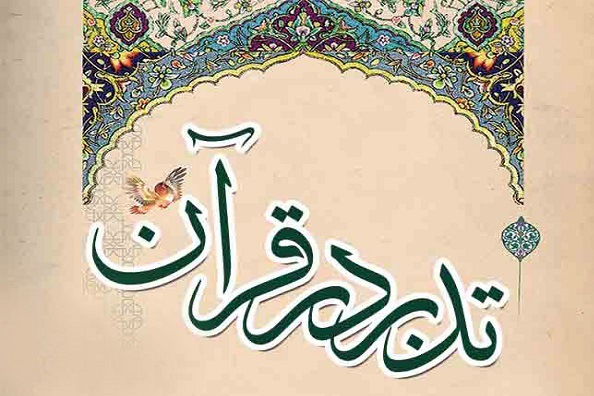 تدبر در قرآن